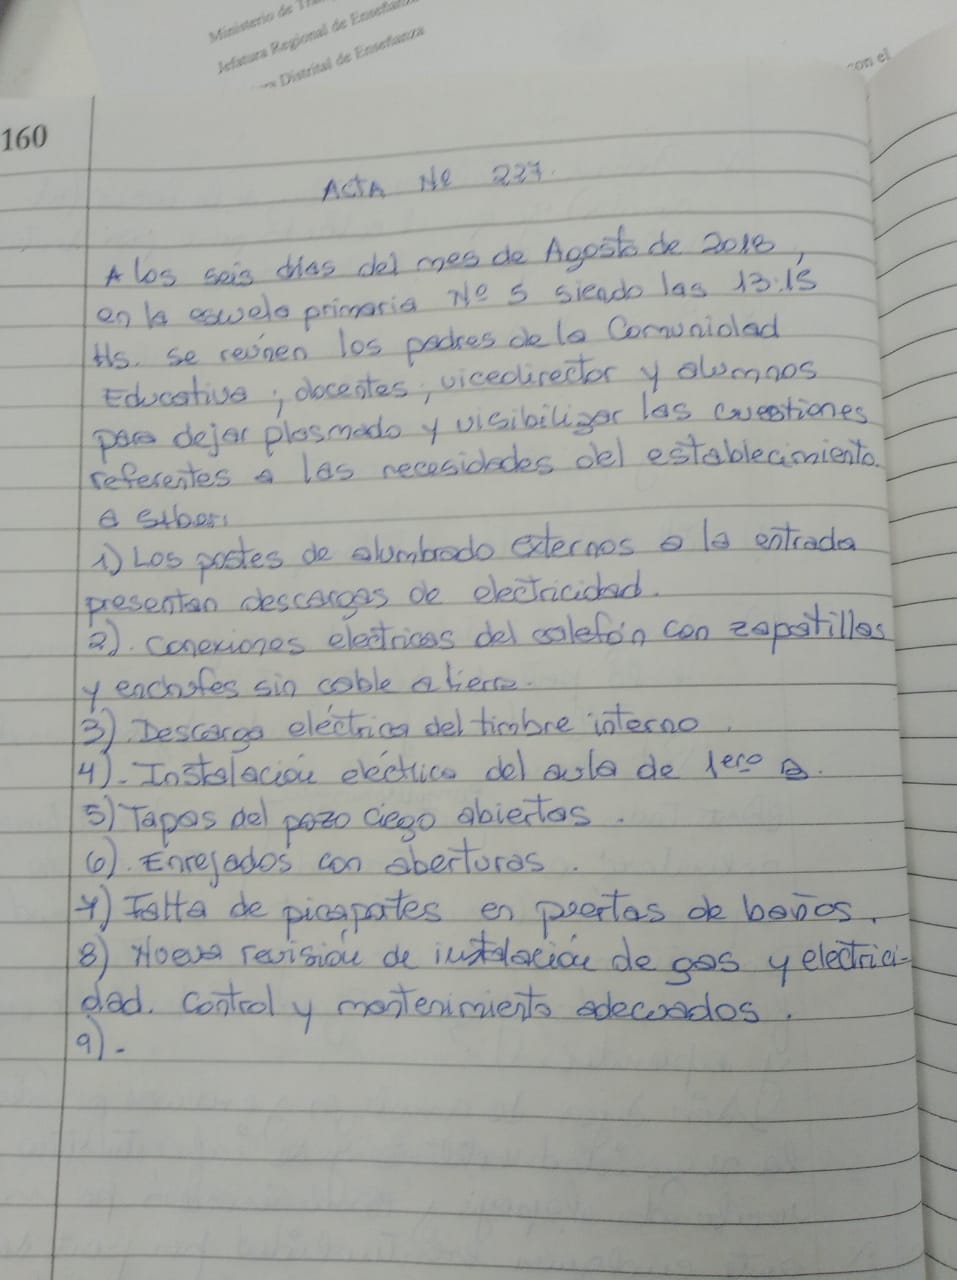 Ministerio de
Jefatura Regional de Enseñanza
Distrital de Enseñanza
con el
160
ACTA Nº 227.
A los seis días del mes de Agosto de 2018,
en la escuela primaria Nº 5 siendo las 13:15
Hs. se reúnen los padres de la Comunidad
Educativa, docentes, vicedirector y alumnos
para dejar plasmado y visibilizar las cuestiones
referentes a las necesidades del establecimiento.
a saber:
1) Los postes de alumbrado externos a la entrada
presentan descargas de electricidad.
2). Conexiones electricas del calefón con zapatillas
y enchufes sin cable a tierra.
3). Descarga eléctrica del timbre interno.
4).- Instalación eléctrica del aula de 1ero B.
5) Tapas del pozo ciego abiertas.
6). Enrejados con aberturas.
7) Falta de picaportes en puertas de baños.
8) Nueva revisión de instalación de gas y electrici-
dad. Control y mantenimiento adecuados.
9).-